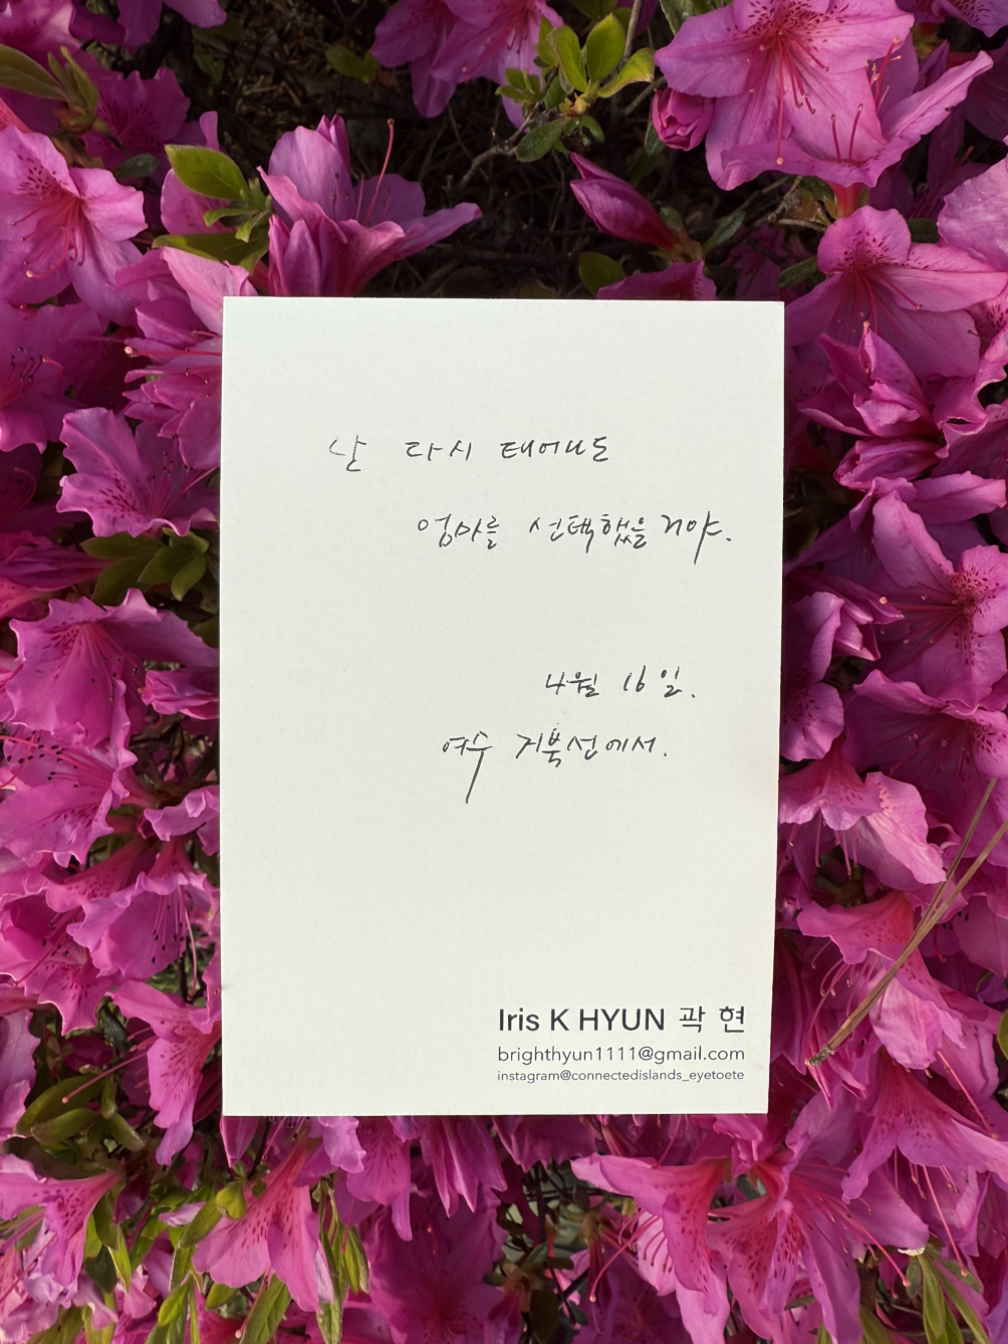 난 다시 태어나도
엄마를 선택했을거야.
4월 16일.
여수 거북선에서.
Iris K HYUN 곽 현
brighthyun1111@gmail.com
instagram@connectedislands_eyetoete